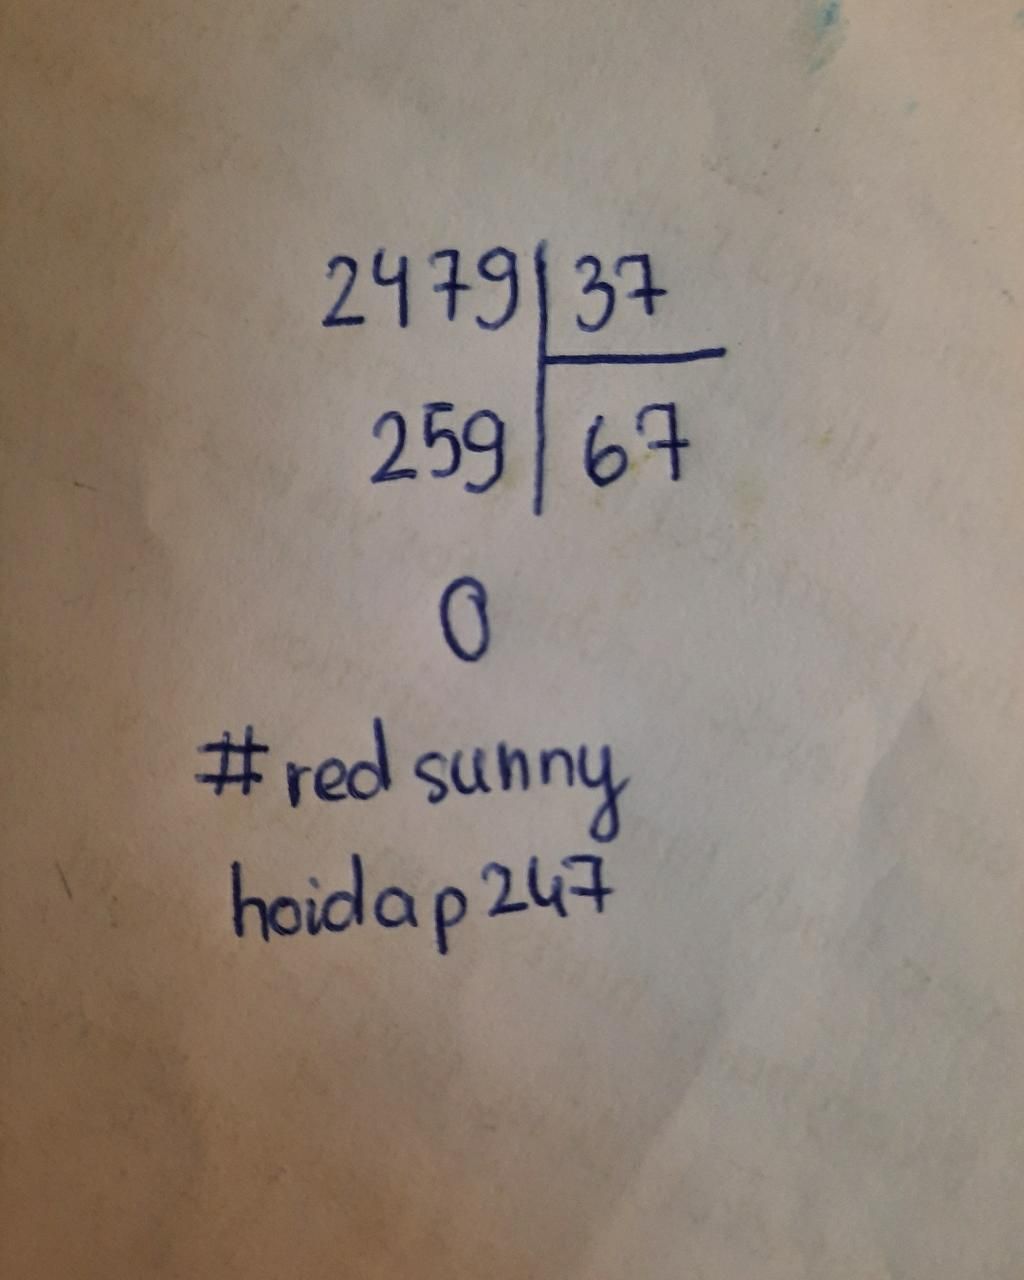 2479 37
259 67
0
#red sunny
hoidap247